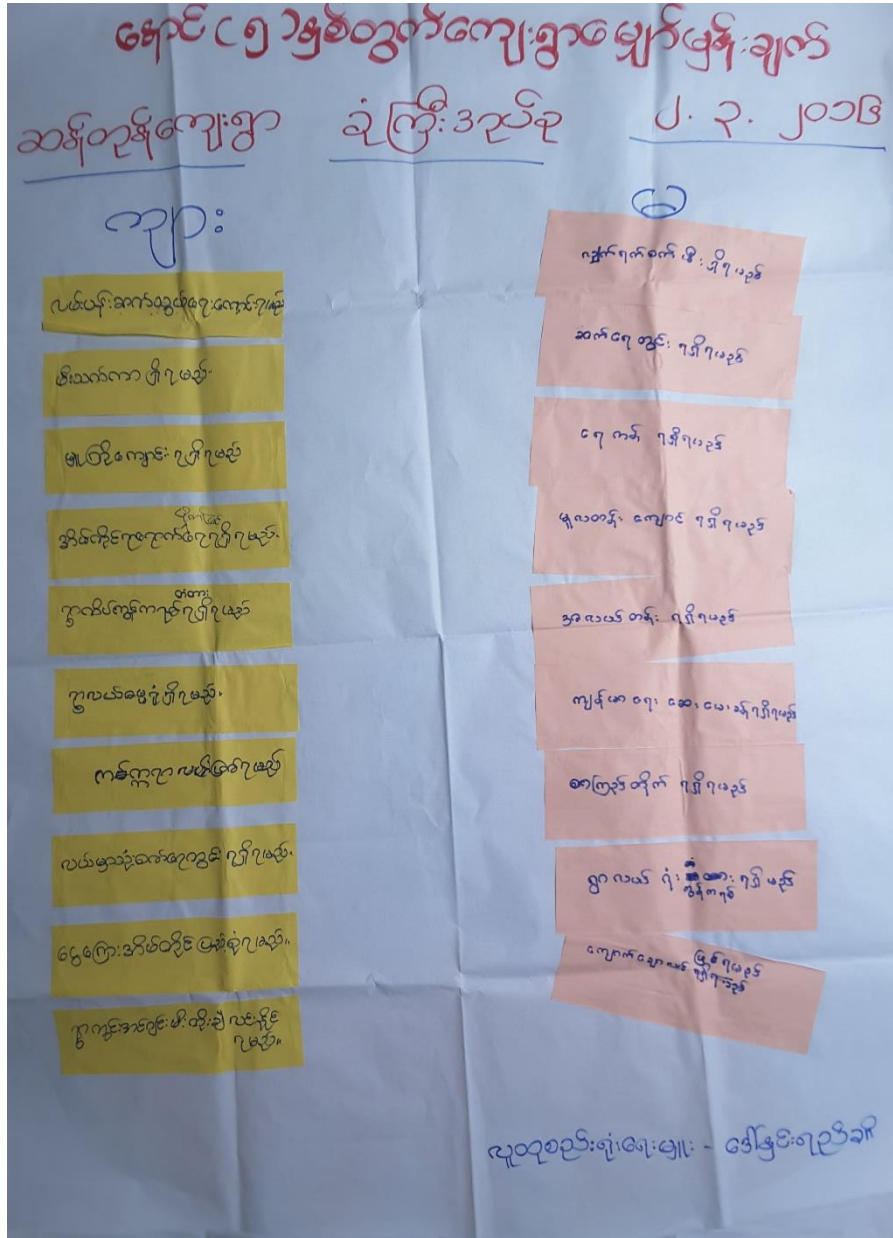 နောင် (၅) နှစ်တွက်ကျေးရွာမျှော်မှန်းချက်
ဆန်တုန်ကျေးရွာ ခုံကြီးအုပ်စု ၂. ၃. ၂၀၁၆
ကျား
လမ်းပန်းဆက်သွယ်ရေးကောင်းရမည်
မီးသက်ကာရှိရမည်.
မူကြိုကျောင်းရရှိရမည်
အိမ်တိုင်ရာရောက်ရေရရှိရမည်.
တံတား
ရွာလယ်ဓမ္မရုံရှိရမည်.
ကတ္တရာလမ်းဖြစ်ရမည်
လယ်မှာသုံးစက်ရေတွင်းရရှိရမည်.
ငွေကြေးအိမ်တိုင်ပြည့်စုံရမည်။
ရွာတွင်းအပြင်မီးတိုးချဲ့လင်းနိုင်
ရမည်။
မ
လျှပ်စစ်မီးရှိရမည်
စက်ရေတွင်း ရရှိရမည်
ရေကန် ရရှိရမည်
မူလတန်း ကျောင်း ရရှိရမည်
အလယ်တန်း ရရှိရမည်
ကျန်းမာရေး ဆေးပေးခန်းရရှိရမည်
စာကြည့်တိုက် ရရှိရမည်
ရွာလယ် ရုံး ရရှိမည်
ကွန်ကရစ်
ကျောက်ချောလမ်း ဖြစ်ရမည်
ရရှိရမည်
လူထုစည်းရုံးရေးမှူး - ဒေါ်နှင်းရည်ခိုင်